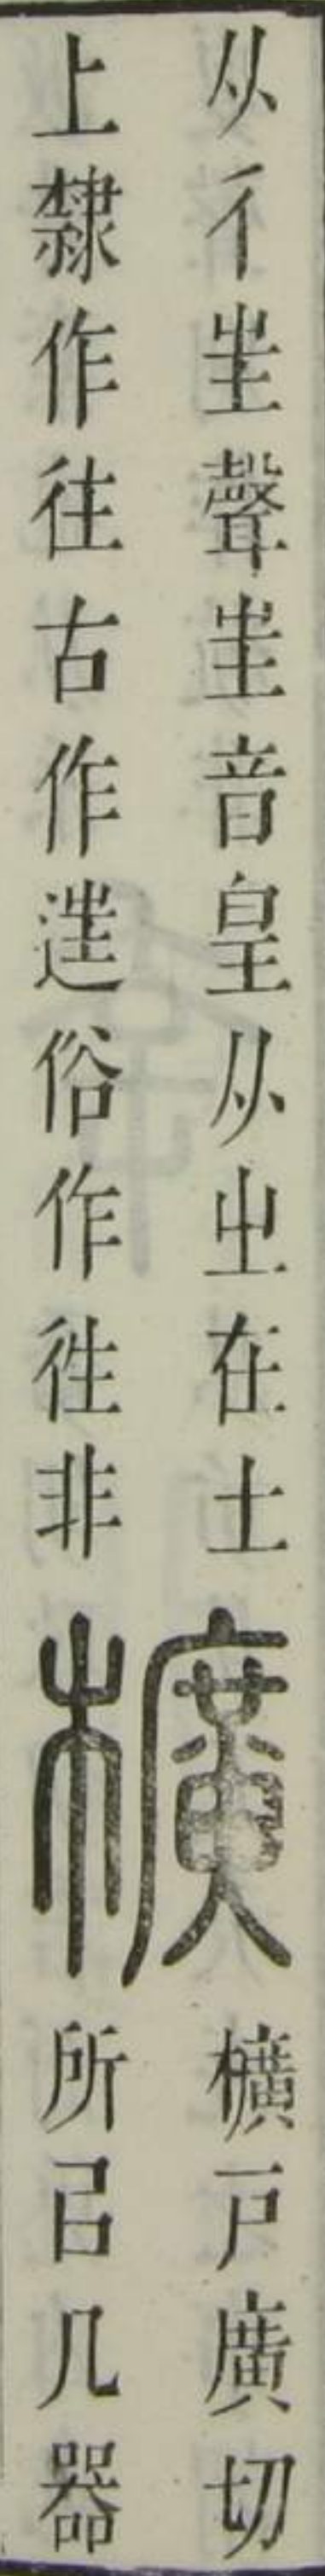 从彳㞷聲㞷音皇从㞢在土
上隸作往古作𨓹俗作徃非
櫎
櫎戸廣切
所㠯几器